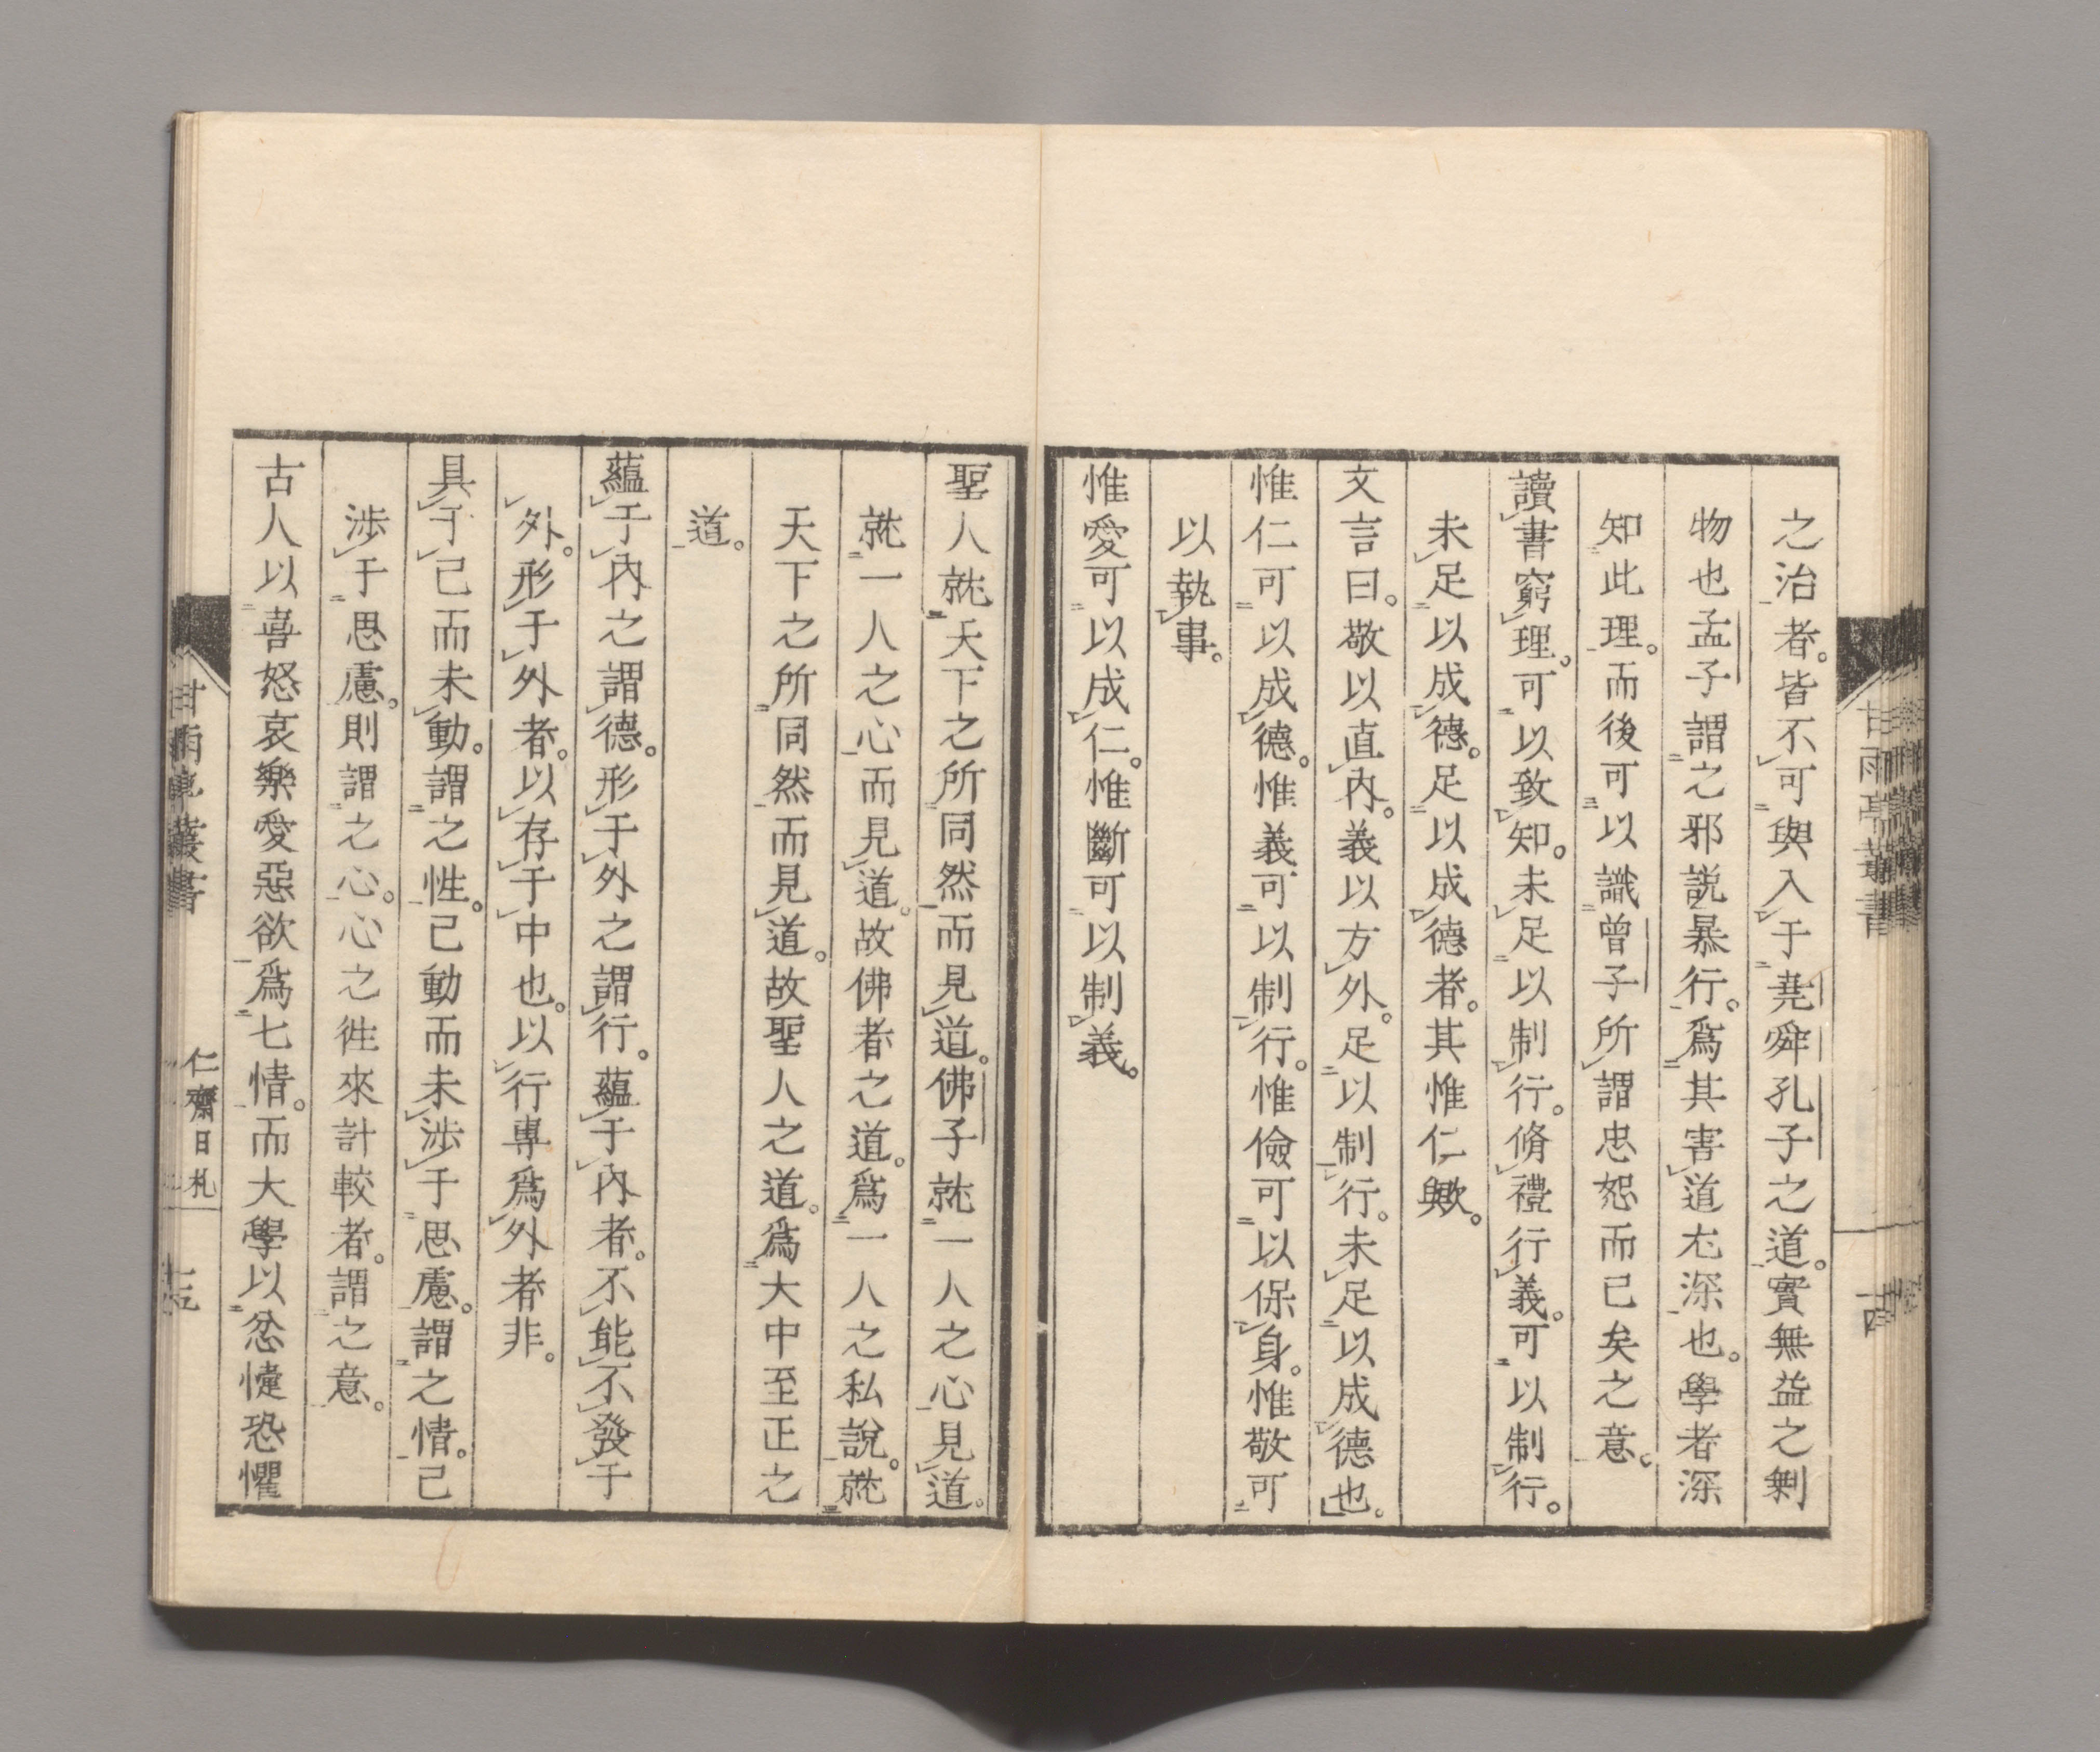 之治者。皆不可與入于堯舜孔子之道。實無益之剩
物也孟子謂之邪説暴行。爲其害道尤深也。學者深
知此理。而後可以識曾子所謂忠恕而已矣之意。
讀書窮理。可以致知。未足以制行。脩禮行義。可以制行。
未足以成德。足以成德者。其惟仁歟。
文言曰。敬以直內。義以方外。足以制行。未足以成德也。
惟仁可以成德。惟義可以制行。惟儉可以保身。惟敬可
以執事。
惟愛可以成仁。惟斷可以制義。
聖人就天下之所同然而見道。佛子就一人之心見道。
就一人之心而見道。故佛者之道。爲一人之私說。就
天下之所同然而見道。故聖人之道。爲大中至正之
道。
蘊于內之謂德。形于外之謂行。蘊于內者。不能不發于
外。形于外者。以存于中也。以行專爲外者非。
具于己而未動。謂之性。已動而未涉于思慮。謂之情。已
涉于思慮。則謂之心。心之徃來計較者。謂之意。
古人以喜怒哀樂愛惡欲爲七情。而大學以忿懥恐懼
甘雨亭叢書
仁齋日札
十五
甘雨亭叢書
十四